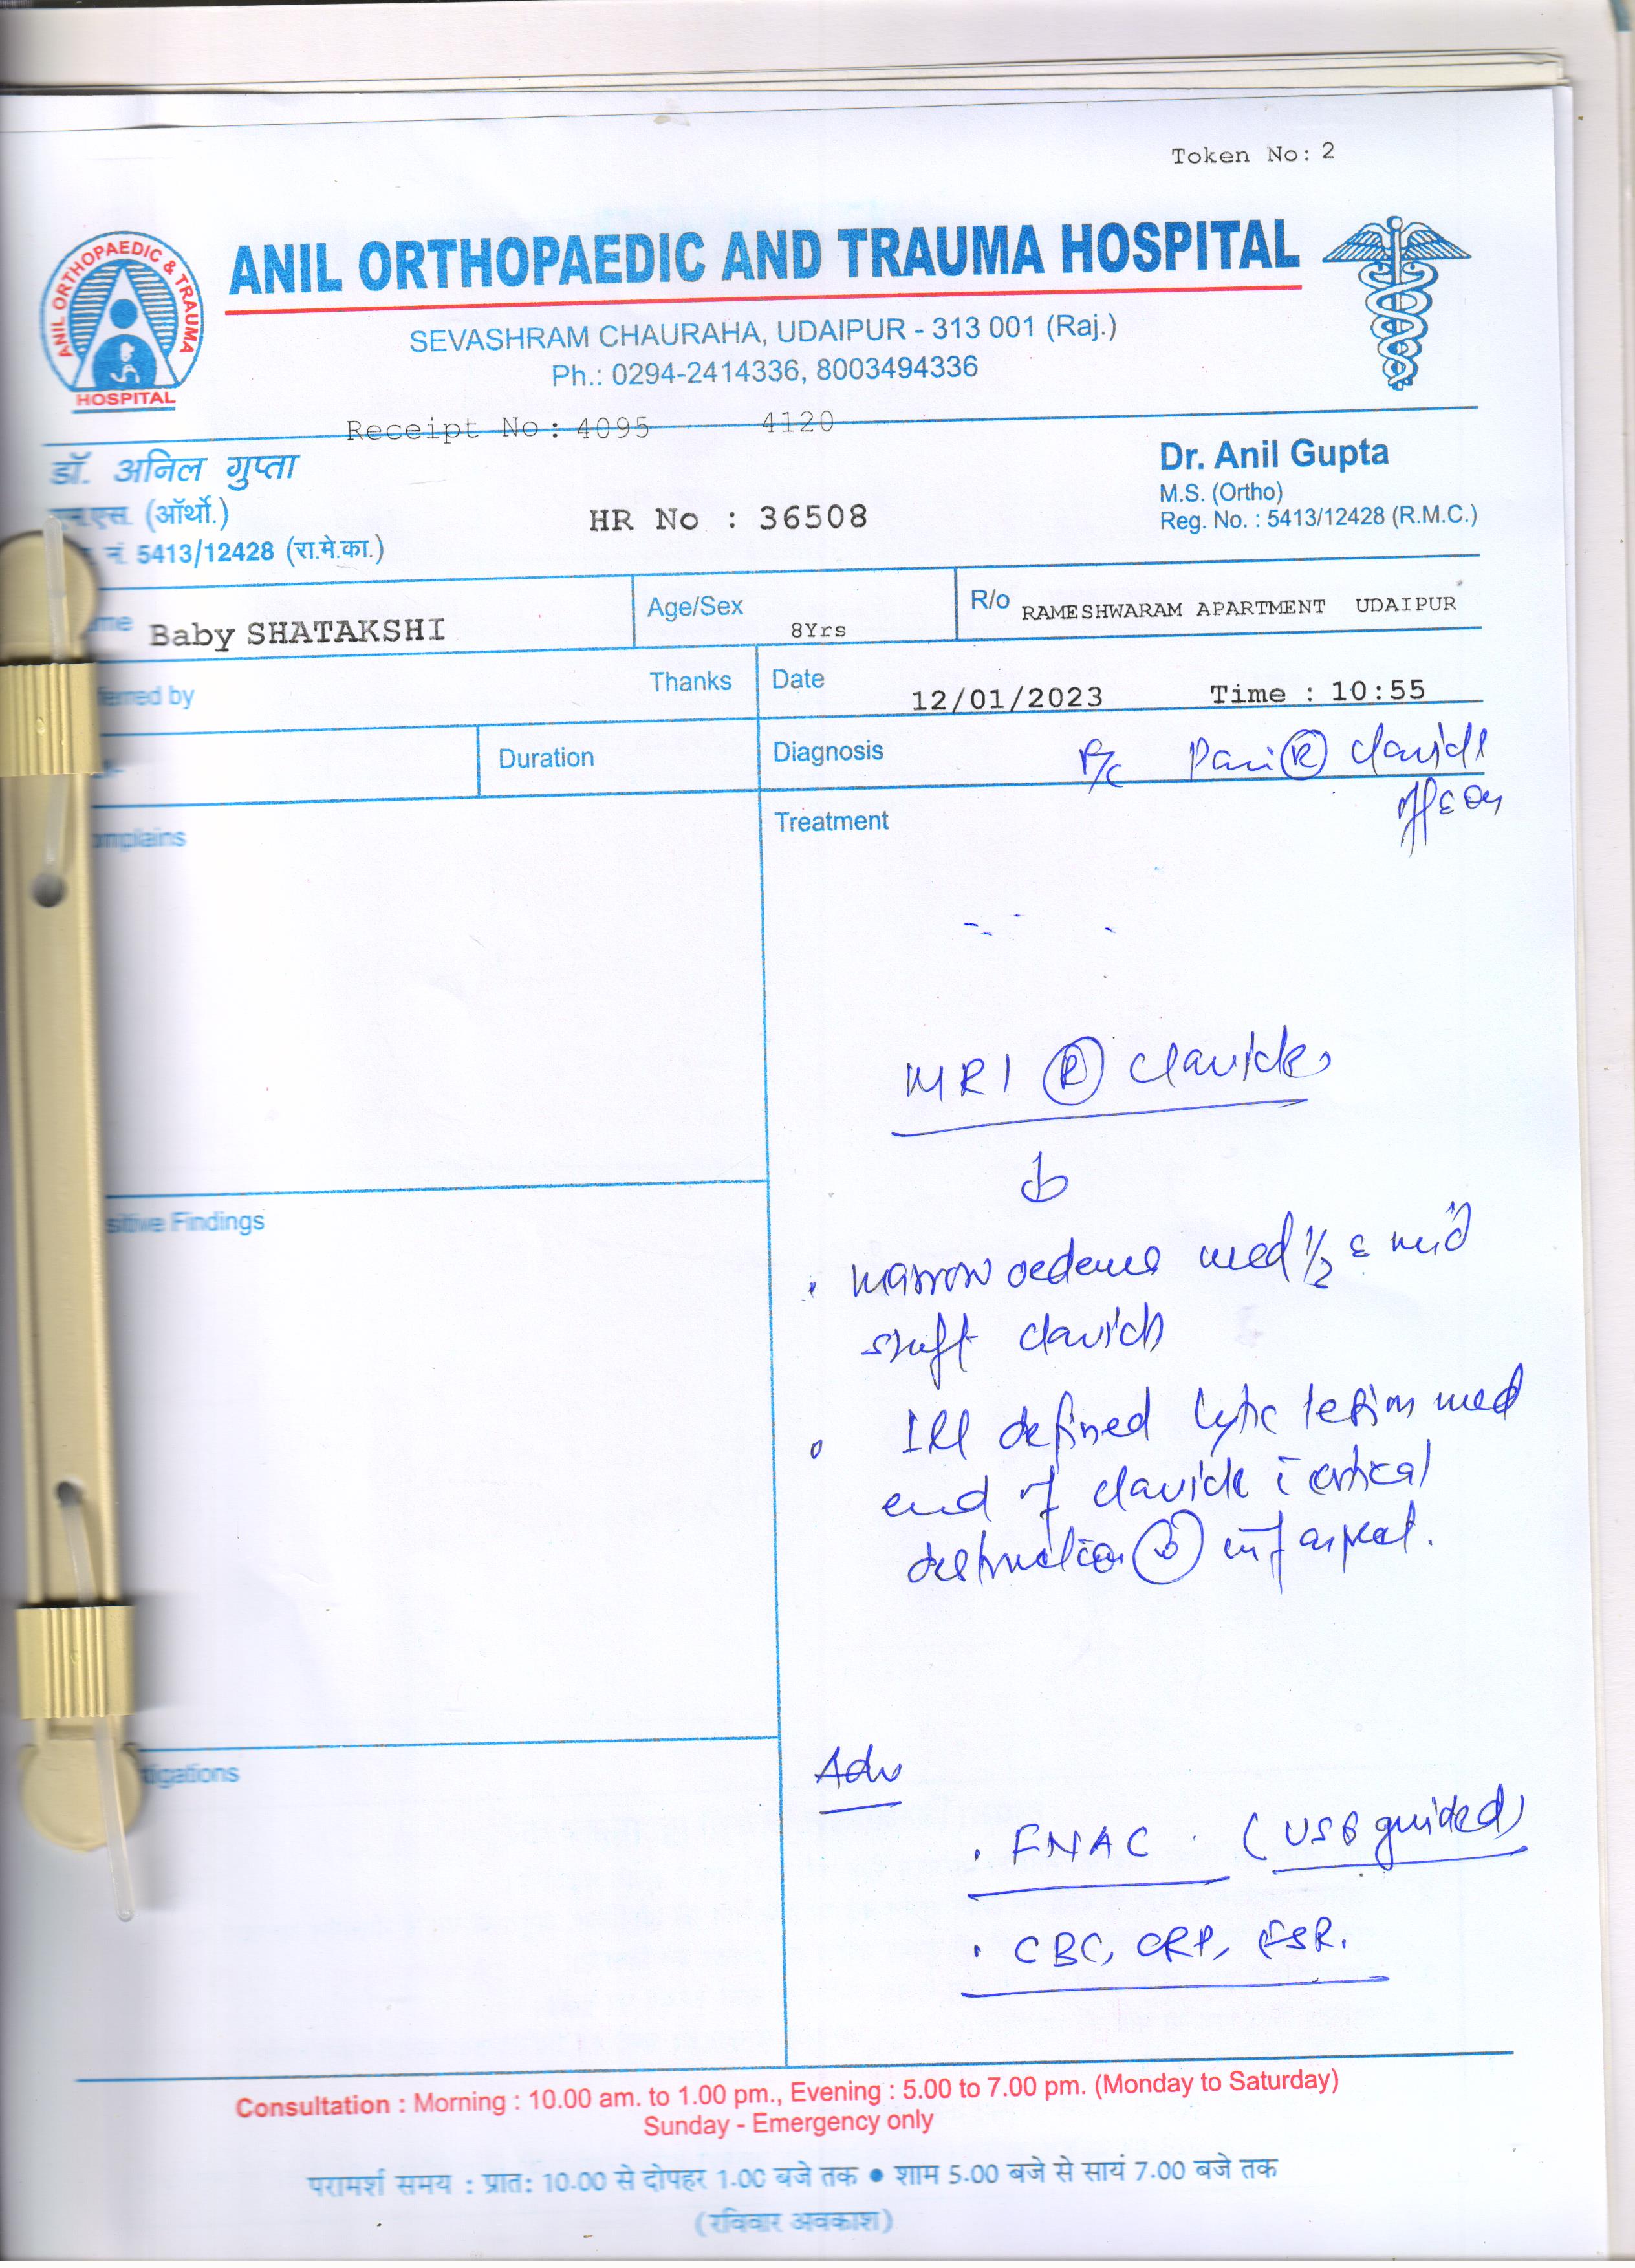 Token No: 2
ANIL ORTHOPAEDIC & TRAUMA
HOSPITAL
ANIL ORTHOPAEDIC AND TRAUMA HOSPITAL
SEVASHRAM CHAURAHA, UDAIPUR - 313 001 (Raj.)
Ph.: 0294-2414336, 8003494336
Receipt No: 4095 4120
डॉ. अनिल गुप्ता
एम.एस. (ऑर्थो.)
नं. 5413/12428 (रा.मे.का.)
HR No : 36508
Dr. Anil Gupta
M.S. (Ortho)
Reg. No. : 5413/12428 (R.M.C.)
me Baby SHATAKSHI
Age/Sex 8Yrs
R/o RAMESHWARAM APARTMENT UDAIPUR
ferred by Thanks
Date 12/01/2023 Time : 10:55
Duration
Diagnosis Pain (R) clavicle
mplains
Treatment
MRI (R) clavicle
sitive Findings
marrow oedema med 1/2 & mid
shaft clavicle
Ill defined lytic lesion med
end of clavicle c cortical
destruction inf aspect.
tigations
Adv
FNAC (USG guided)
CBC, CRP, ESR.
Consultation : Morning : 10.00 am. to 1.00 pm., Evening : 5.00 to 7.00 pm. (Monday to Saturday)
Sunday - Emergency only
परामर्श समय : प्रात: 10.00 से दोपहर 1.00 बजे तक ● शाम 5.00 बजे से सायं 7.00 बजे तक
(रविवार अवकाश)